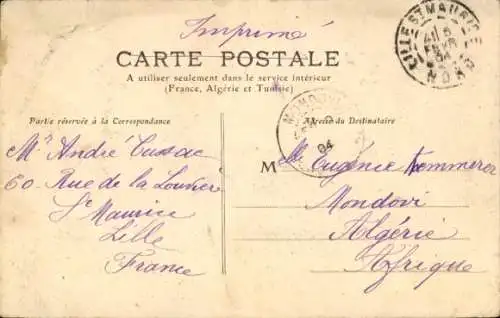 Imprimé
CARTE POSTALE
A utiliser seulement dans le service intérieur
(France, Algérie et Tunisie)
LILLE ST MAURICE
NORD
04
Partie réservée à la Correspondance
Adresse du Destinataire
04
Mr André Cussac
60. Rue de la Louvière
St Maurice
Lille
France
Mlle Eugénie Kemmerer
Mondovi
Algérie
Afrique